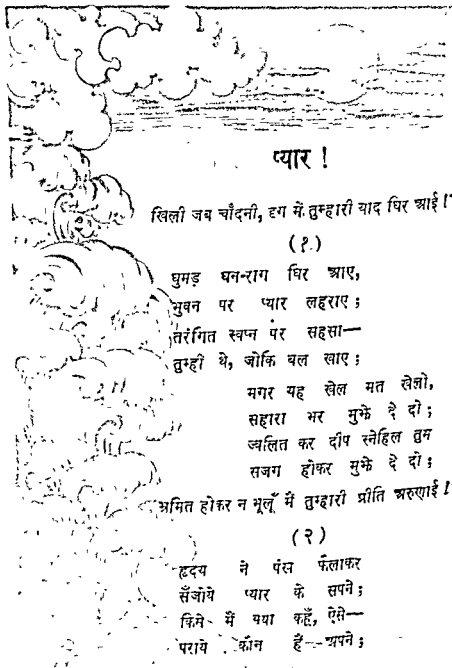 प्यार !
खिली जब चाँदनी, दृग में तुम्हारी याद घिर आई !
(१)
घुमड़ घन-राग घिर आए,
भुवन पर प्यार लहराए ;
तरंगित स्वप्न पर सहसा—
तुम्हीं थे, जोकि बल खाए ;
मगर यह खेल मत खेलो,
सहारा भर मुझे दे दो ;
ज्वलित कर दीप स्नेहिल तुम
सजग होकर मुझे दे दो ;
भ्रमित होकर न भूलूँ मैं तुम्हारी प्रीति अरुणाई !
(२)
हृदय ने पंख फैलाकर
सँजोये प्यार के सपने ;
किसे मैं क्या कहूँ, ऐसे—
पराये कौन हैं—अपने ;